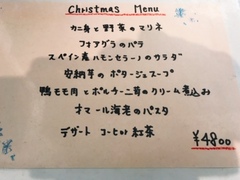 Christmas Menu
カニ身と野菜のマリネ
フォアグラのパテ
スペイン産ハモンセラーノのサラダ
安納芋のポタージュスープ
鴨モモ肉とポルチーニ茸のクリーム煮込み
オマール海老のパスタ
デザート コーヒーor紅茶
¥4800